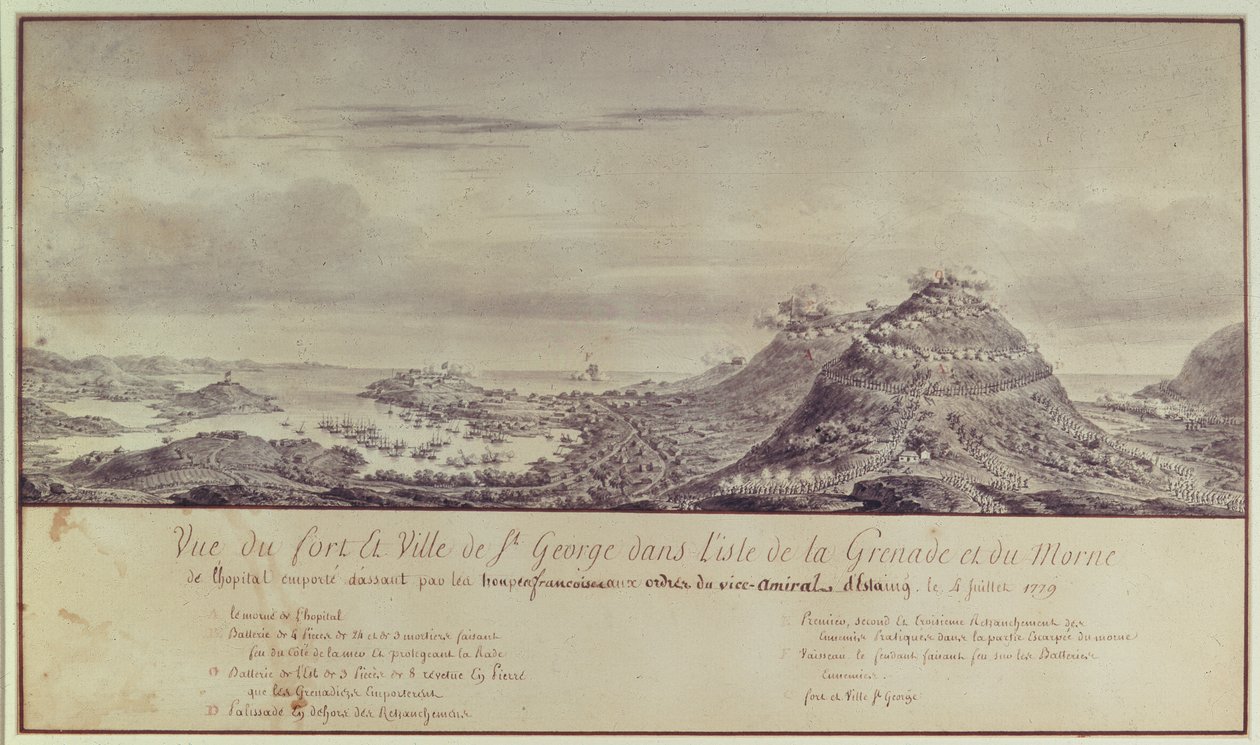 Vue du fort Et Ville de St George dans l'isle de la Grenade et du Morne
de l'hopital emporté d'assaut par les troupes francoises aux ordres du vice-Amiral d'Estaing. le 4 Juillet 1779
A le morne de l'hopital
B Batterie de 4 Pieces de 24 et de 3 mortiers faisant
feu du Côté de la mer Et protegeant la Rade
C Batterie de l'Est de 3 Pieces de 8 revetue En Pierre
que les Grenadiers Emporterent
D Palissade En dehors des Retranchemens
E Premier, second Et troisieme Retranchement des
Ennemis Pratiques dans la partie Escarpée du morne
F Vaisseau le fendant faisant feu sur les Batteries
Ennemies.
fort et Ville St George